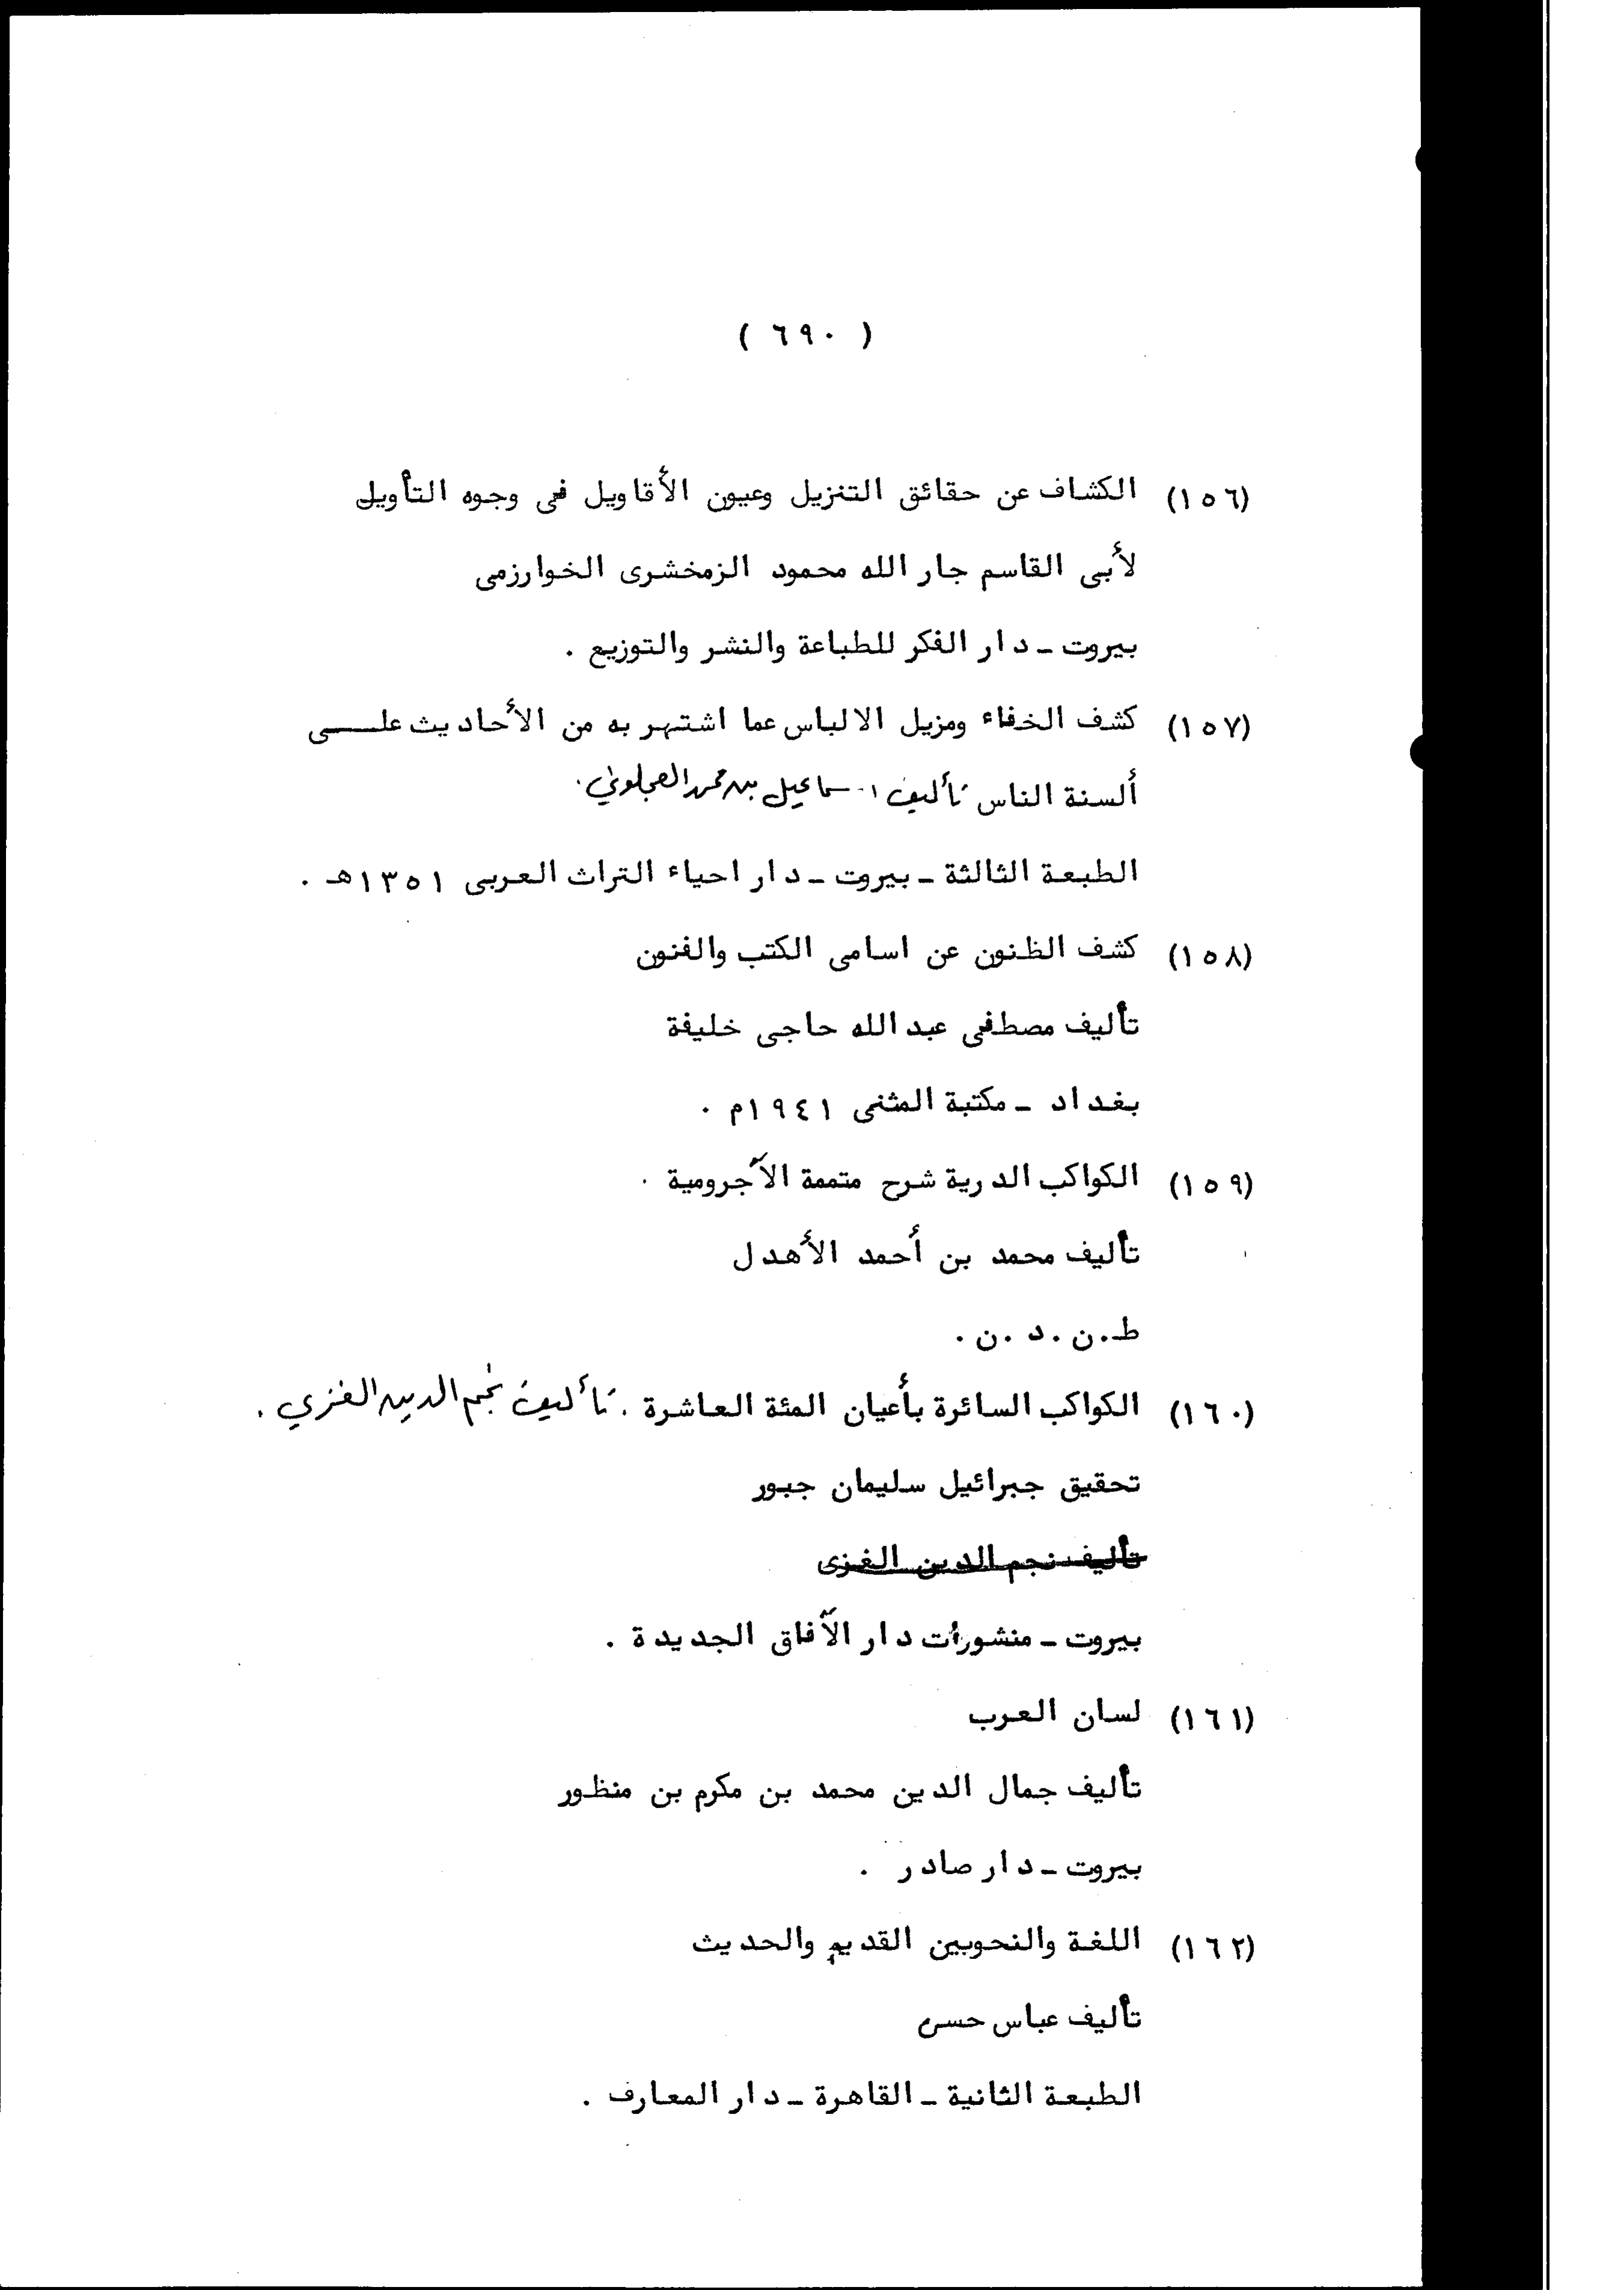 ( ٦٩٠ )
(١٥٦) الكشاف عن حقائق التنزيل وعيون الأقاويل فى وجوه التأويل
لأبى القاسم جار الله محمود الزمخشرى الخوارزمى
بيروت ـ دار الفكر للطباعة والنشر والتوزيع .
(١٥٧) كشف الخفاء ومزيل الالباس عما اشتهر به من الأحاديث علـــى
ألسنة الناس تأليف اسماعيل بن محمد العجلوني .
الطبعة الثالثة ـ بيروت ـ دار احياء التراث العربى ١٣٥١هـ .
(١٥٨) كشف الظنون عن اسامى الكتب والفنون
تأليف مصطفى عبد الله حاجى خليفة
بغداد ـ مكتبة المثنى ١٩٤١م .
(١٥٩) الكواكب الدرية شرح متممة الآجرومية .
تأليف محمد بن أحمد الأهدل
ط.ن.د.ن.
(١٦٠) الكواكب السائرة بأعيان المئة العاشرة . تأليف نجم الدين الغزي .
تحقيق جبرائيل سليمان جبور
تأليف نجم الدين الغزى
بيروت ـ منشورات دار الآفاق الجديدة .
(١٦١) لسان العرب
تأليف جمال الدين محمد بن مكرم بن منظور
بيروت ـ دار صادر .
(١٦٢) اللغة والنحوبين القديم والحديث
تأليف عباس حسن
الطبعة الثانية ـ القاهرة ـ دار المعارف .